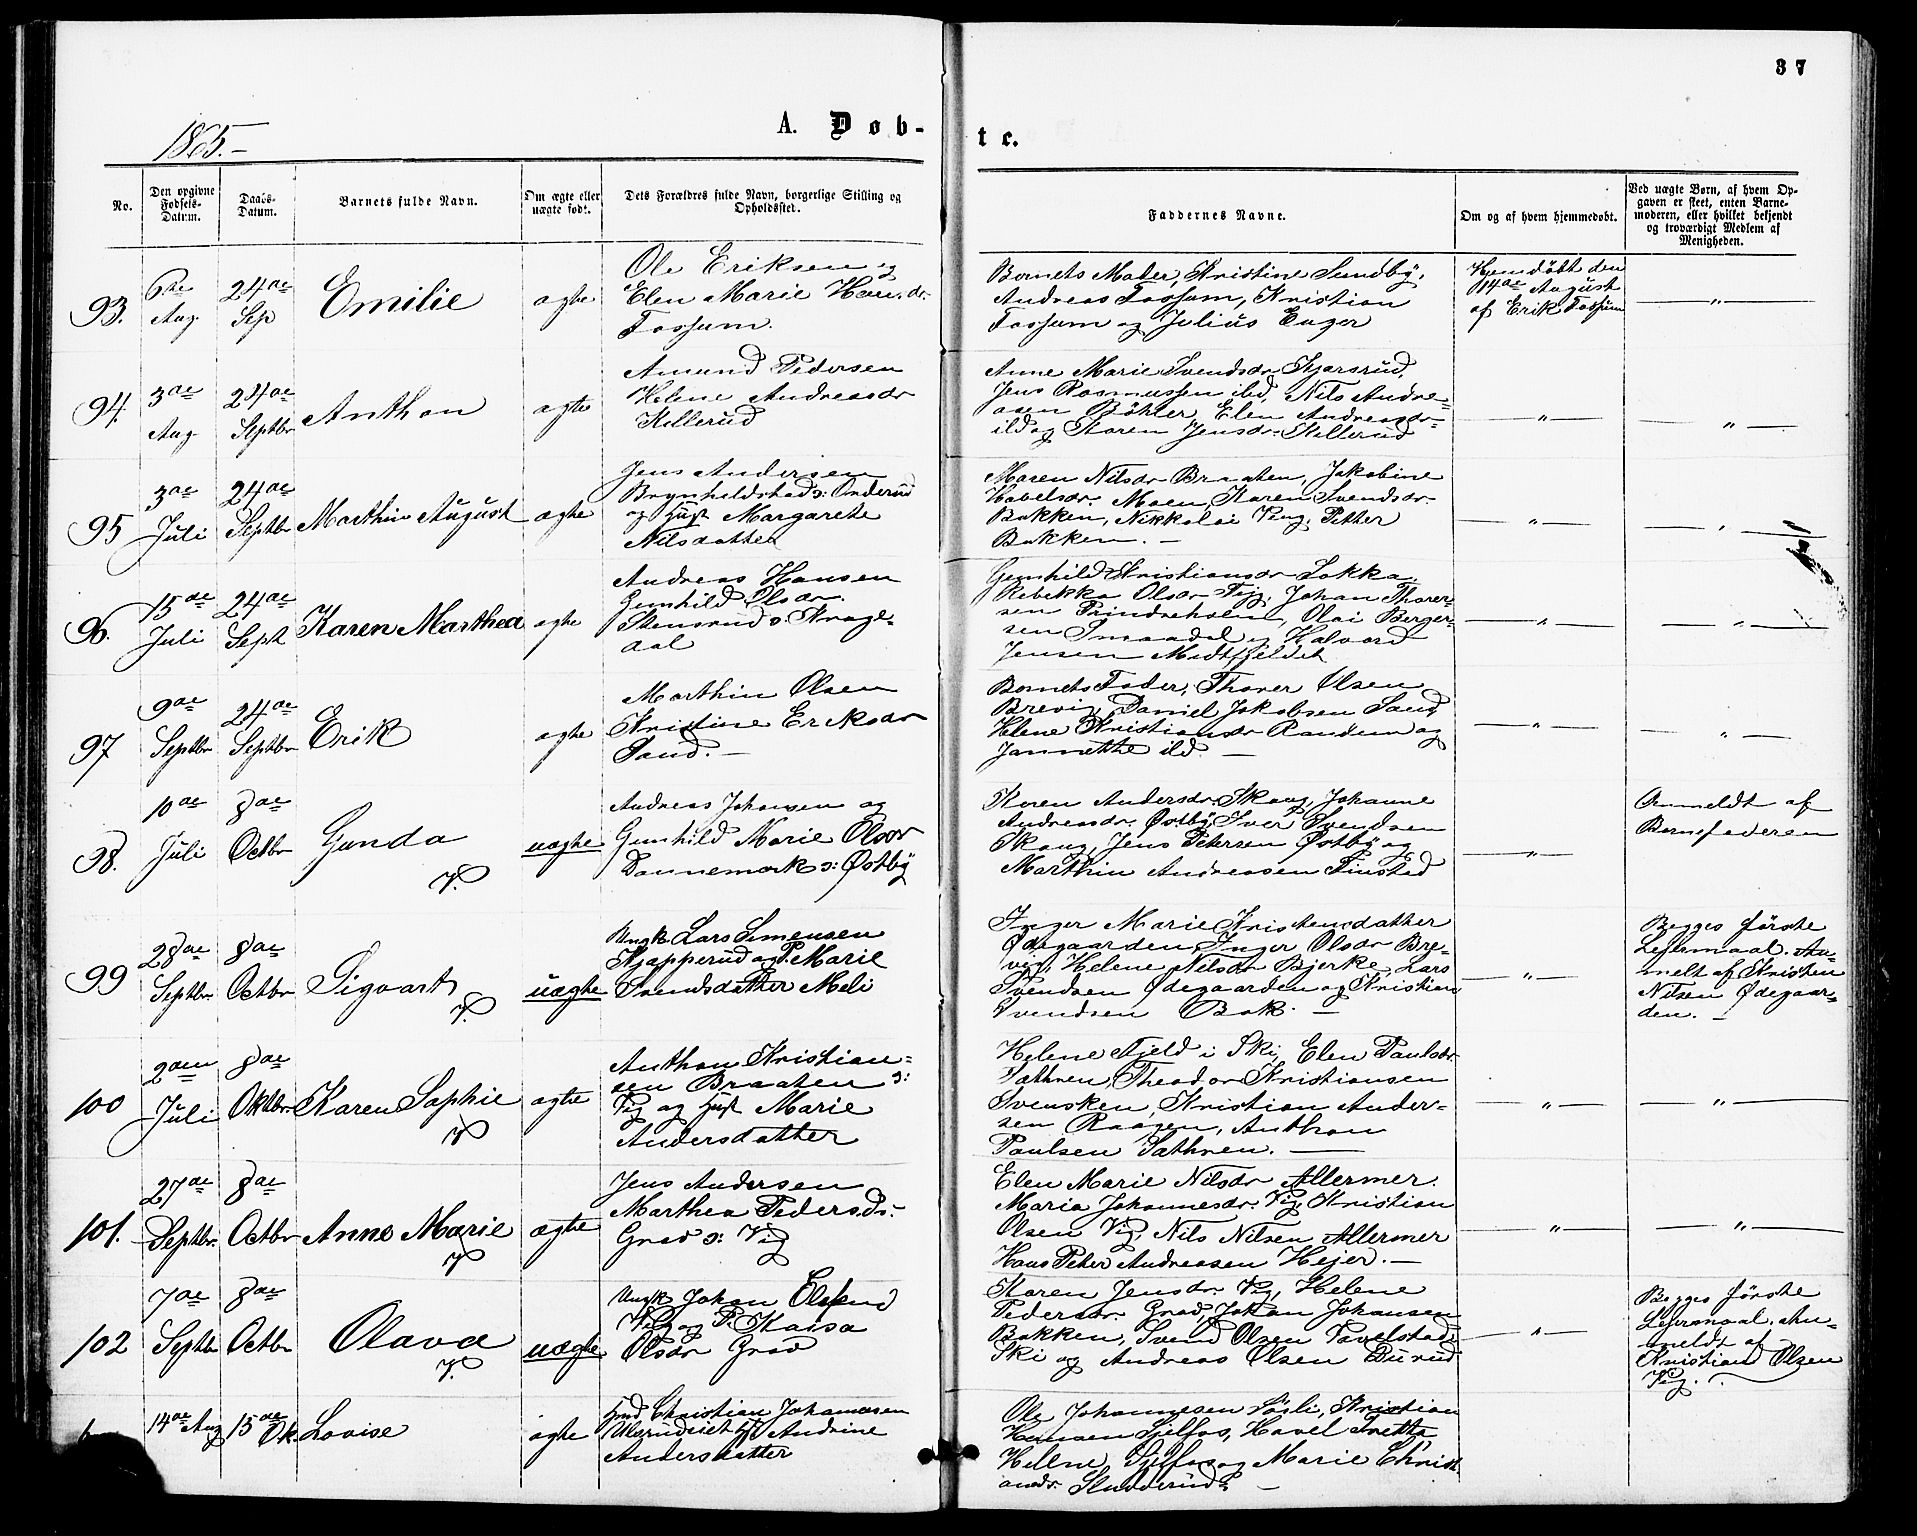 37
1865.-
A. Døb-
te.
No.
Den opgivne Fødsels-Datum.
Daabs-Datum.
Barnets fulde Navn.
Om ægte eller uægte født.
Dets Forældres fulde Navn, borgerlige Stilling og Opholdssted.
Faddernes Navne.
Om og af hvem hjemmedøbt.
Ved uægte Børn, af hvem Opgaven er skeet, enten Barnemoderen, eller hvilket bekjendt og troværdigt Medlem af Menigheden.
93.
6te Aug.
24de Sep
Emilie
ægte
Ole Eriksen og
Elen Marie Hansdr.
Fossum.
Barnets Moder, Kristine Sundby,
Andreas Fossum, Kristian
Fossum og Julius Enger
Hjemdøbt den
14de August
af Erik Fossum
— " —
94.
3de Aug.
24de Septbr
Anthon
ægte
Amund Pedersen
Helene Andreasdr
Killerud
Anne Marie Svendsdr
Jens Rasmussen ibd, Nils Andre=
asen Bøhler, Elen Andreasdr=
ibd og Karen Jensdr. Killerud
— " —
— " —
95
3de Juli
24de Septbr
Marthin August
ægte
Jens Andersen
Brynhildstad s: Onderud
og Hust Margarete
Nilsdatter
Maren Nilsdr Braaten, Jakobine
Havelsdr. Moen, Karen Svendsdr.
Bakken, Nikkolai Vig, Petter
Bakken. —
— " —
— " —
96.
15de Juli
24de Sept
Karen Marthea
ægte
Andreas Hansen
Gunhild Olsdr.
Stensrud s: Krage=
aal
Gunhild Kristiansdr Løkka
Rebekka Olsdr Vig, Johan Thorer=
sen Trindreholen, Olai Berger=
sen Smaadal og Halvard
Jensen Midtfjeldet
— " —
— " —
97
9de Septbr
24de Septbr
Erik
ægte
Marthin Olsen
Kristine Eriksdr
Sand. —
Barnets Fader, Thorer Olsen
Brevig, Daniel Jakobsen Sand,
Helene Kristiansdr Randem og
Jannette ibd. —
— " —
— " —
98.
10de Juli
8de Octbr
Gunda
V.
uægte
Andreas Johansen og
Gunhild Marie Olsdr
Dannemark s: Østby
Karen Andersdr. Skaug, Johanne
Andreasdr. Østby, Iver Svendsen
Skaug, Jens Petersen Østby og
Marthin Andreasen Finstad
— " —
Anmeldt af
Barnefaderen
99
28de Septbr
8de Octbr
Sigvart
V.
uægte
Ungk. Lars Simensen
Kjapperud og P. Marie
Svendsdatter Meli
Inger Marie Kristensdatter
Ødegaarden, Inger Olsdr Bre=
vig, Helene Nilsdr Bjerke, Lars
Svendsen Ødegaarden og Kristian
Svendsen Bak. —
— " —
Begges første
Leiermaal. An=
melt af Kristen
Nilsen Ødegaar=
den. —
100
2den Juli
8de Oktbr
Karen Sophie
V
ægte
Anthon Kristian=
sen Braaten s:
Vig og Hust Marie
Andersdatter
Helene Fjeld i Ski, Elen Paulsdr.
Sæthren, Theodor Kristiansen
Svensken, Kristian Ander=
sen Raagen, Anthon
Paulsen Sæthren. —
— " —
— " —
101.
27de Septbr.
8de Octbr
Anne Marie
V
ægte
Jens Andersen
Marthea Peders.D.
Grav s: Vig
Elen Marie Nilsdr Allermer.
Maria Johannesdr. Vig, Kristian
Olsen Vig, Nils Nilsen Allermer
Hans Peter Andreasen Hejer. —
— " —
— " —
102
7de Septbr
8de Octbr
Olava
V.
uægte
Ungk Johan
Vig og P. Kaisa
Olsdr Grav
Karen Jensdr. Vig, Helene
Pedersdr. Grav, Johan Johansen
Bakken, Svend Olsen Tavelstad
Ski og Andreas Olsen Burud
— " —
Begges første
Leiermaal. An=
meldt af
Kristian Olsen
Vig.
14de Aug
15de Ok.
Lovise
ægte
Christian Johannesen
Andrine
Andersdatter
Ole Johannesen Kristian
Hansen Sjelfos, Havel Tretta
Helene Sjelfos og Marie Christ
ansdr. Sludderud —